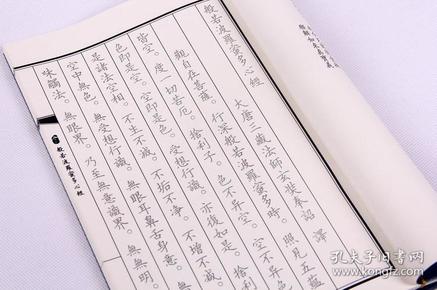 般若波羅蜜多心經
大唐三藏法師玄奘奉詔 譯
觀自在菩薩。行深般若波羅蜜多時。照見五蘊
皆空。度一切苦厄。舍利子。色不異空。空不異
色即是空。空即是色。受想行識。亦復如是。舍利
是諸法空相。不生不滅。不垢不淨。不增不減。
空中無色。無受想行識。無眼耳鼻舌身意。無
味觸法。無眼界。乃至無意識界。無無明。
般若波羅蜜多心經
孔夫子旧书网